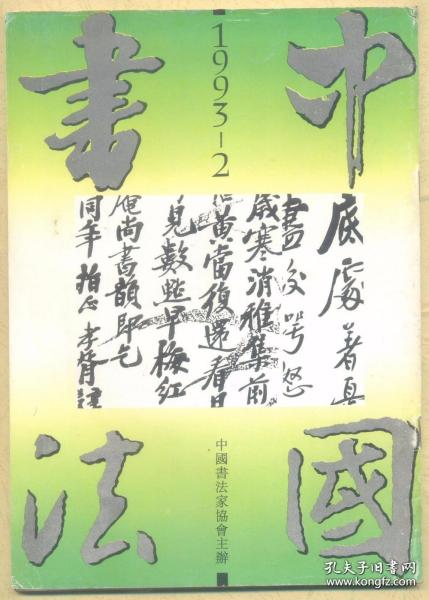 中國
書法
1993-2
底處著真
畫後咢怒
歲寒消雅集前
黄當復還看日
見數點早梅紅
庵尚書韻即乞
同年拍正 李
中國書法家協會主辦
孔夫子旧书网
www.kongfz.com